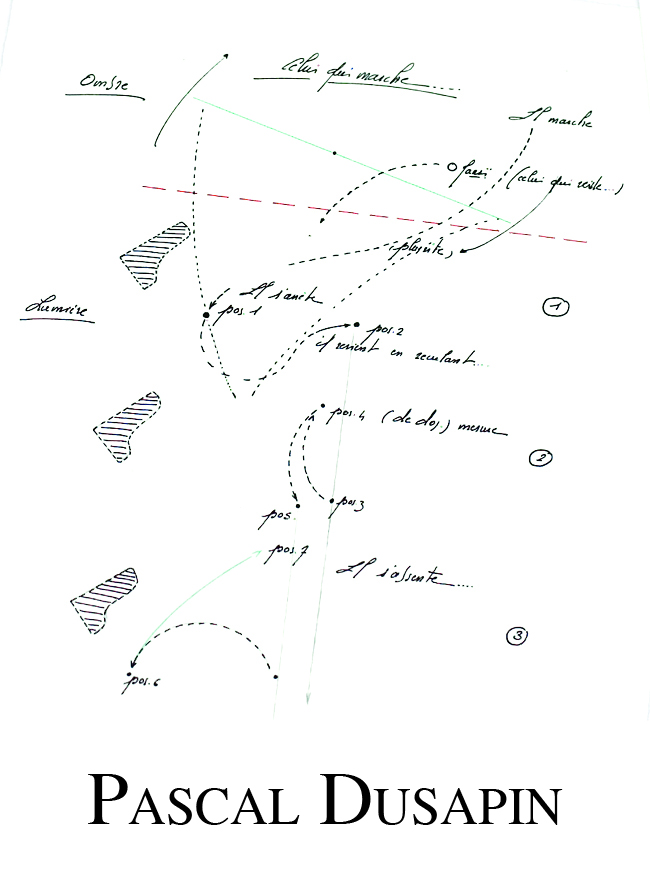 Celui qui marche....
Ombre
Il marche
(celui qui reste...)
Il s'arrête
pos.1
Lumière
1
pos.2
il revient en reculant...
pos.4 (de dos)
2
pos.3
pos.
pos.7
Il s'absente....
3
pos.6
PASCAL DUSAPIN